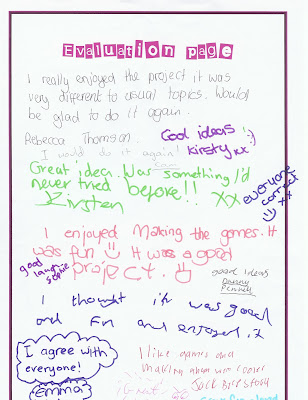 Evaluation page
I really enjoyed the project it was
very different to usual topics. Would
be glad to do it again.
Rebecca Thomson.
Cool ideas! :)
Kirsty xx
I would do it again!
Great idea. Was something I'd
never tried before!!
Kirsten xx
everyone
correct
xx
I enjoyed Making the games. It
was fun It was a good
project.
good
laugh
sophie
good ideas
I thought it was good
and Fun and enjoyed it
I agree with
everyone!
Emma
I like games and
making them was cooler
Jack